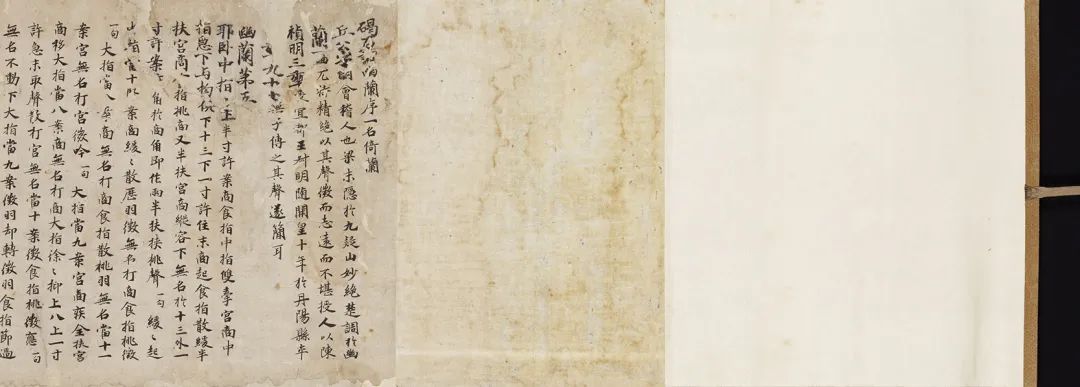 碣石調幽蘭序一名倚蘭
丘公字明會稽人也梁末隱於九疑山妙絕楚調於幽
蘭一曲尤特精絕以其聲微而志遠而不堪授人以陳
禎明三年授宜都王叔明隨開皇十年於丹陽縣卒
年九十七無子傳之其聲遂簡耳
幽蘭第五
耶臥中指〻上半寸許案商食指中指雙牽宮商中
指急下与拘俱下十三下一寸許住末商起食指散緩半
扶宮商食指挑商又半扶宮商縱容下無名於十三外一
寸許案商角於商角即作兩半扶挾挑聲一句緩〻起
案商緩〻散歷羽徵無名打商食指挑徵
一句 大指當八案商無名打商食指散挑羽無名當十一
案宮無名打宮徵吟一句 大指當九案宮商疾全扶宮
商移大指當八案商無名打商大指徐〻抑上八上一寸
許急末取聲散打宮無名當十案徵食指挑徵應一句
無名不動下大指當九案徵羽却轉徵羽食指節過